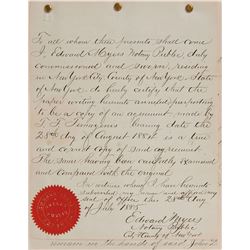 To all whom these presents shall come
I Edward Myers Notary Public duly
Commissioned and sworn, residing
in New York City County of New York State
of New York do hereby certify that the
paper writing hereunto annexed purporting
to be a copy of an agreement made by
bearing date the
28th day of August 1884 is a true
and correct copy of said agreement
The same having been carefully examined
and compared with the original
In witness whereof I have hereunto
subscribed my name and affixed my
seal of office this 28th day
of June 1885
Edward Myers
Notary Public
City & County of New York
remain in the hands of said John